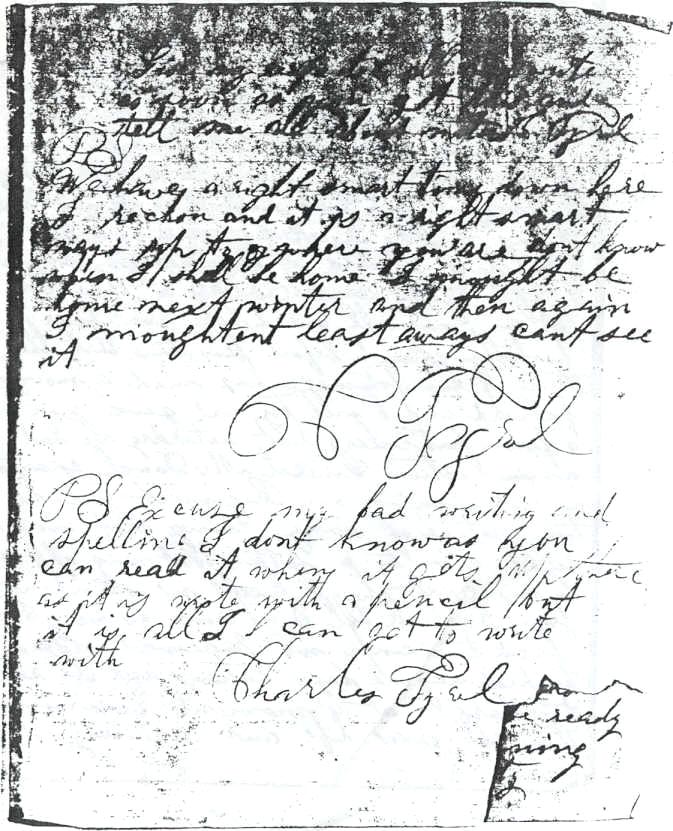 my
as you
tell me all about
PS
We have a right smart time down here
I reckon and it is a right smart
ways up to where you are dont know
when I shall be home I mought be
home next winter and then again
I moughtent least aways cant see
it
C Tyrel
PS Excuse my bad writing and
spelling I dont know as you
can read it when it gets up there
as it is wrote with a pencil but
it is all I can get to write
with
Charles Tyrel
ready
ning